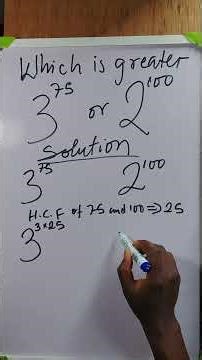 Which is greater
3^75 or 2^100
Solution
3^75 2^100
H.C.F of 75 and 100 ⇒ 25
3^3×25